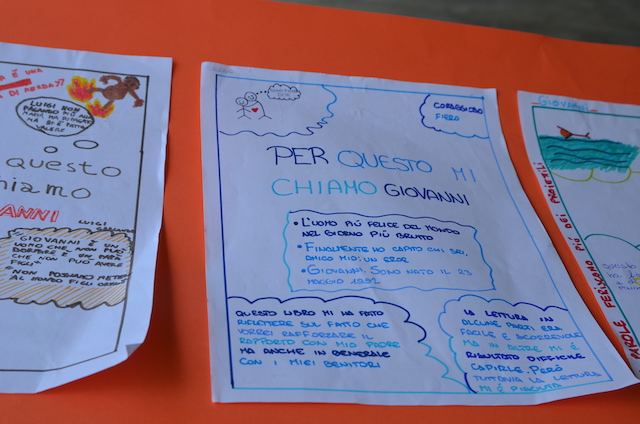 LUIGI NON
PAGANDO PIÙ ALLA
MAFIA HA DIMOSTRATO
DI FARSI
VALERE
questo
chiamo
VANNI
LUIGI
GIOVANNI È UN
UOMO CHE NON PUÒ
DORMIRE È UN PAPÀ
CHE NON PUÒ AVERE
FIGLI
NON POSSIAMO METTERE
AL MONDO FIGLI ORFANI
CORAGGIOSO
FIERO
PER QUESTO MI
CHIAMO GIOVANNI
• L'UOMO PIÙ FELICE DEL MONDO
NEL GIORNO PIÙ BRUTTO
• FINALMENTE HO CAPITO CHI SEI,
AMICO MIO: UN EROE
• GIOVANNI, SONO NATO IL 23
MAGGIO 1992
QUESTO LIBRO MI HA FATTO
RIFLETTERE SUL FATTO CHE
VORREI RAFFORZARE IL
RAPPORTO CON MIO PADRE
MA ANCHE IN GENERALE
CON I MIEI GENITORI
LA LETTURA IN
ALCUNE PARTI ERA
FACILE E SCORREVOLE
MA IN ALTRE MI È
RISULTATO DIFFICILE
CAPIRLE. PERÒ
TUTTAVIA LA LETTURA
MI È PIACIUTA
GIOVANNI
PAROLE FERISCONO PIÙ DEI PROIETTILI
questo